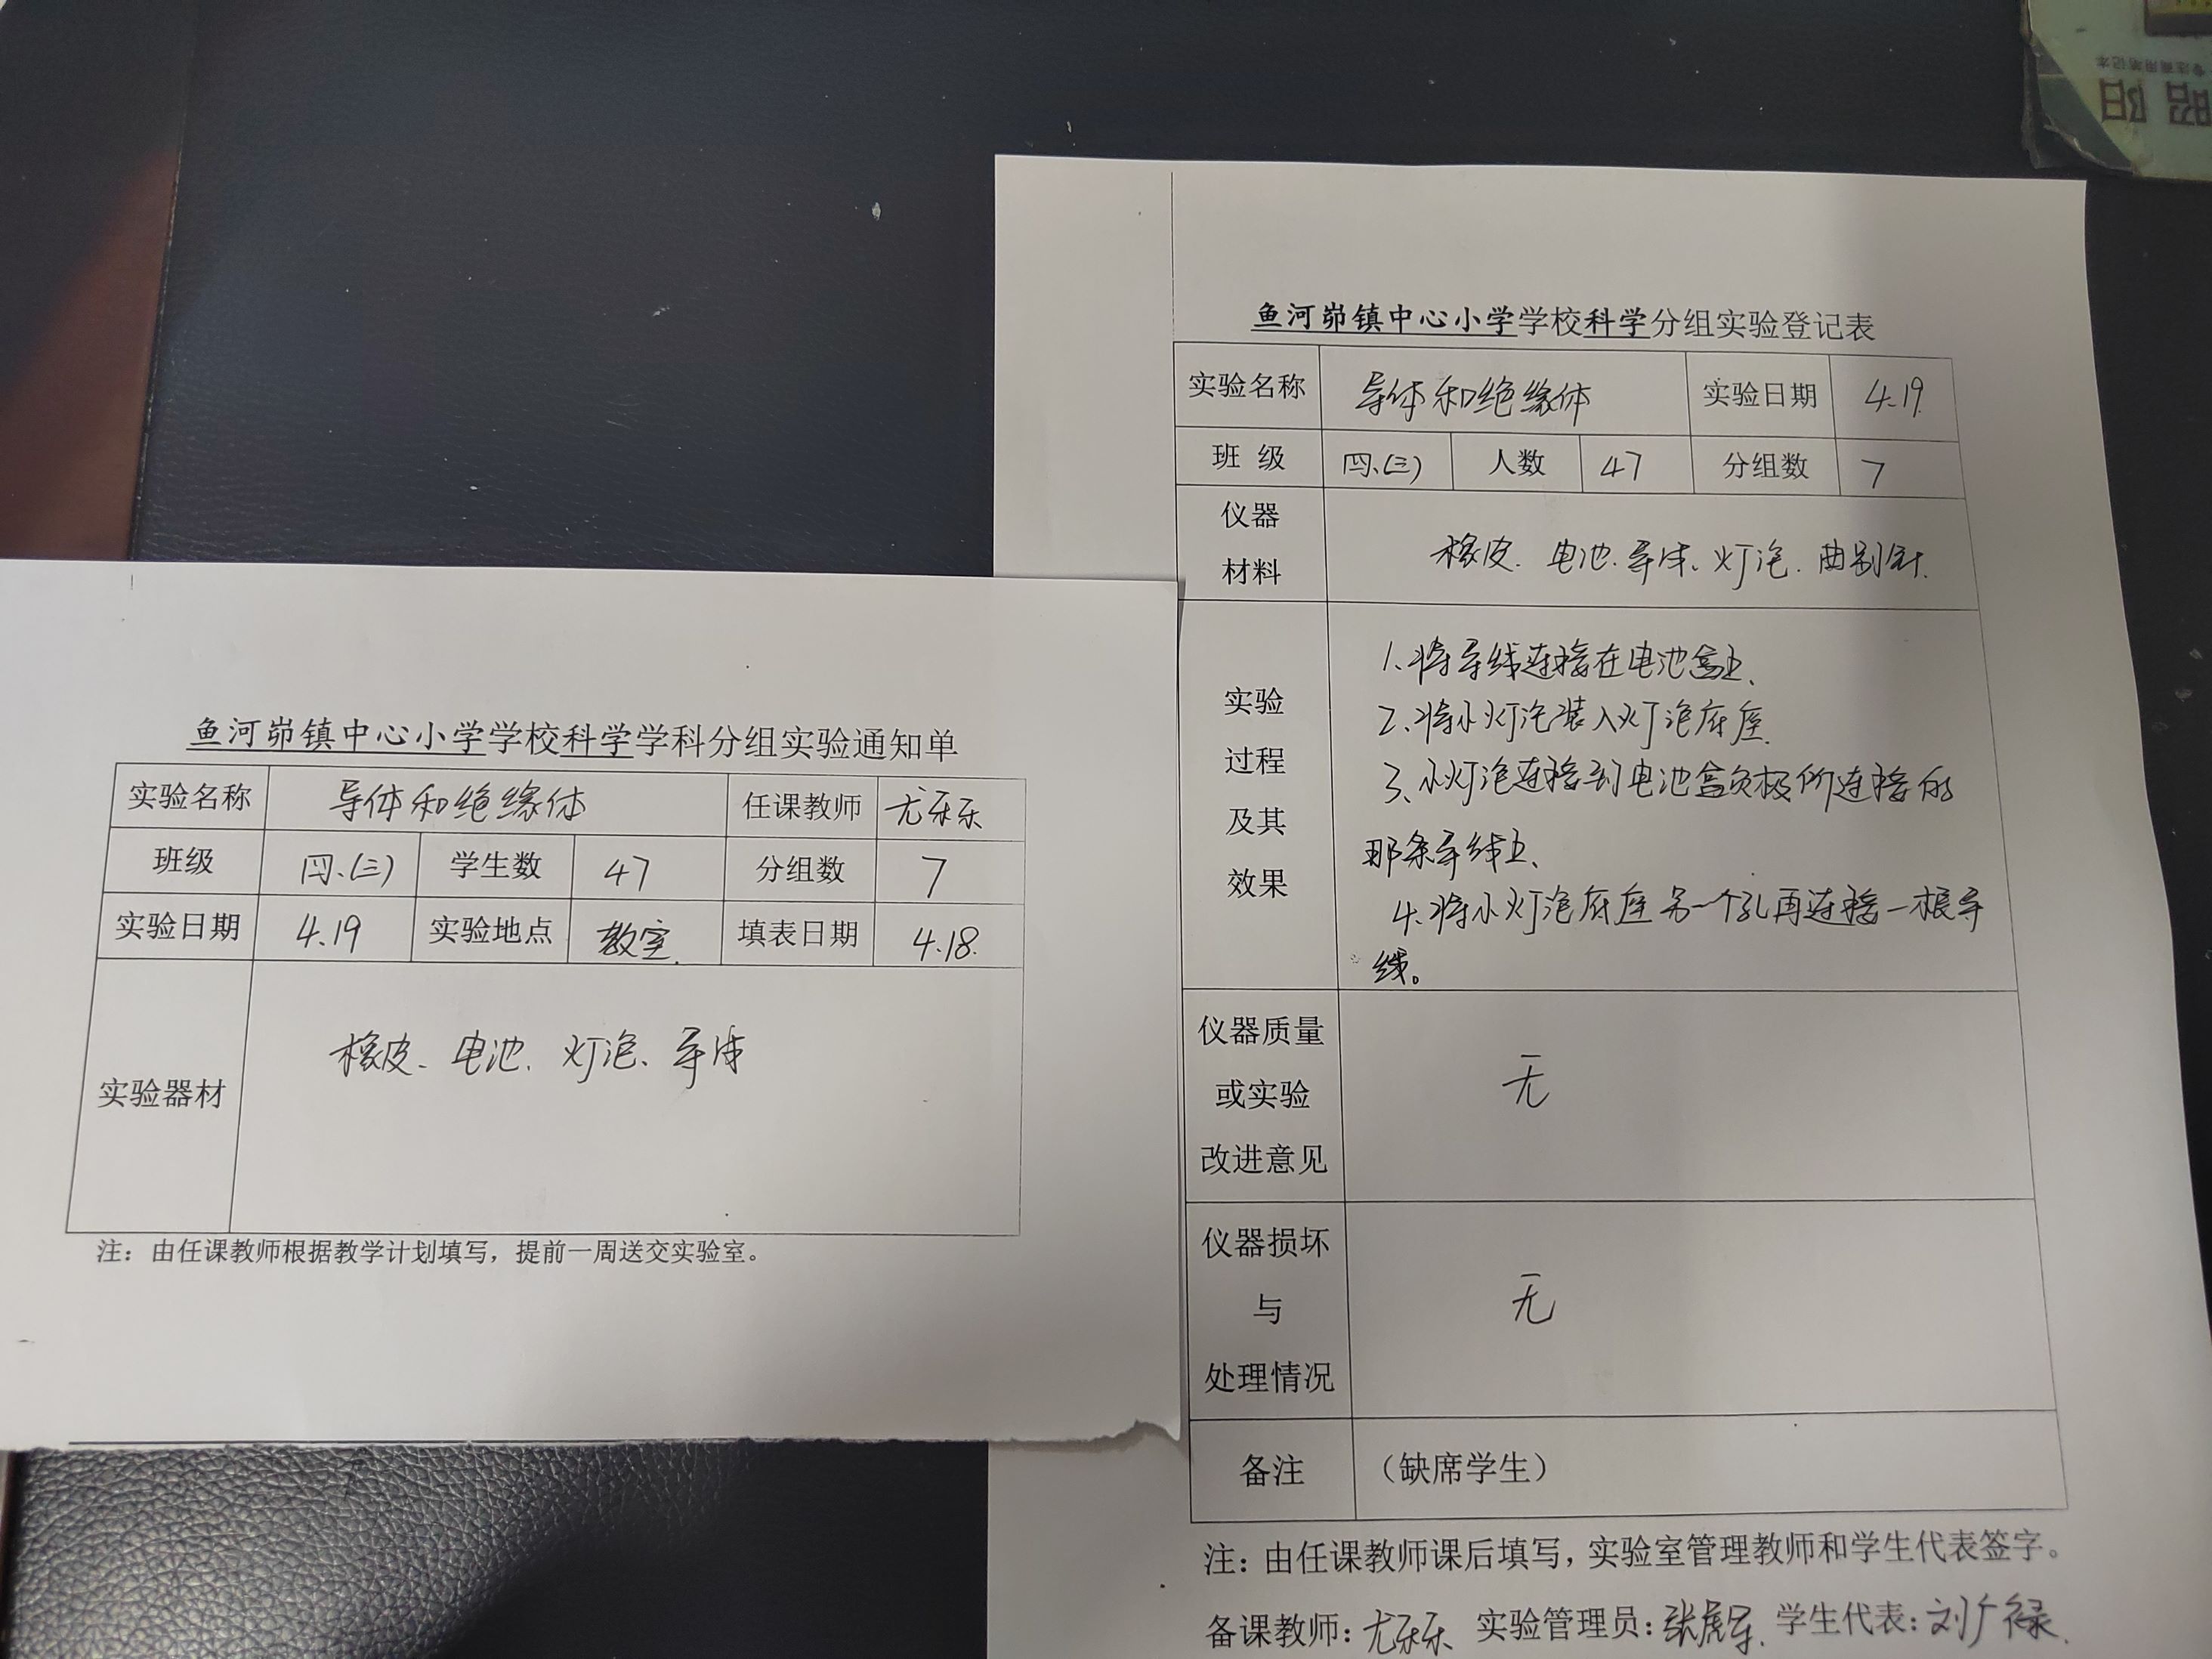 鱼河峁镇中心小学学校科学学科分组实验通知单
实验名称 导体和绝缘体 任课教师 尤乐乐
班级 四.(三) 学生数 47 分组数 7
实验日期 4.19 实验地点 教室. 填表日期 4.18.
实验器材 橡皮、电池、灯泡、导体
注：由任课教师根据教学计划填写，提前一周送交实验室。
鱼河峁镇中心小学学校科学分组实验登记表
实验名称 导体和绝缘体 实验日期 4.19.
班 级 四.(三) 人数 47 分组数 7
仪器
材料
橡皮. 电池.导体、灯泡. 曲别针.
实验
过程
及其
效果
1、将导线连接在电池盒上、
2、将小灯泡装入灯泡底座.
3、小灯泡连接到电池盒负极所连接的
那条导线上、
4.将小灯泡底座另一个孔再连接一根导
线。
仪器质量
或实验
改进意见
无
仪器损坏
与
处理情况
无
备注 （缺席学生）
注：由任课教师课后填写，实验室管理教师和学生代表签字。
备课教师：尤乐乐 实验管理员：张 学生代表：刘广禄.
昭阳
专注商用笔记本